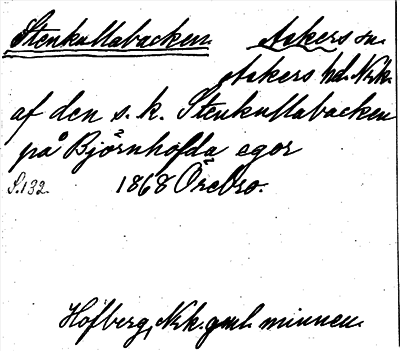 Stenkullabacken. Askers sn.
Askers hd. Nrk.
af den s. k. Stenkullabacken
på Björnhofda egor
S. 132. 1868 Örebro.
Hofberg, Nrk. gml. minnen.